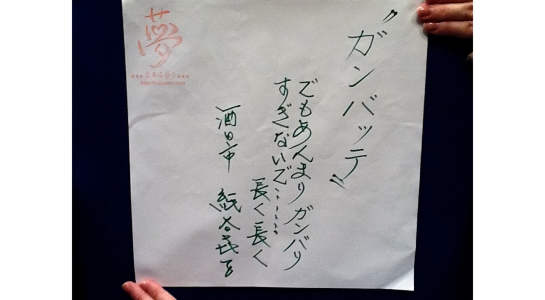 〝ガンバッテ〟
でもあんまりガンバリ
すぎないで……
長く長く
酒田市
夢